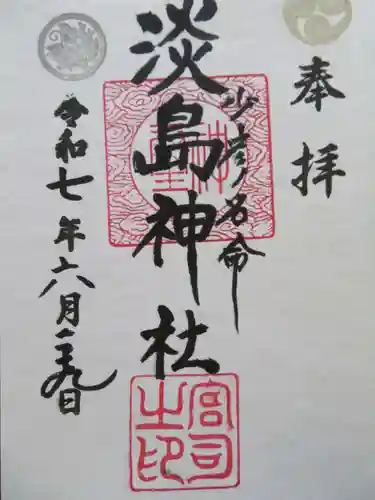 奉拝
少彦名命
淡島神社
宮司之印
令和七年六月二十九日